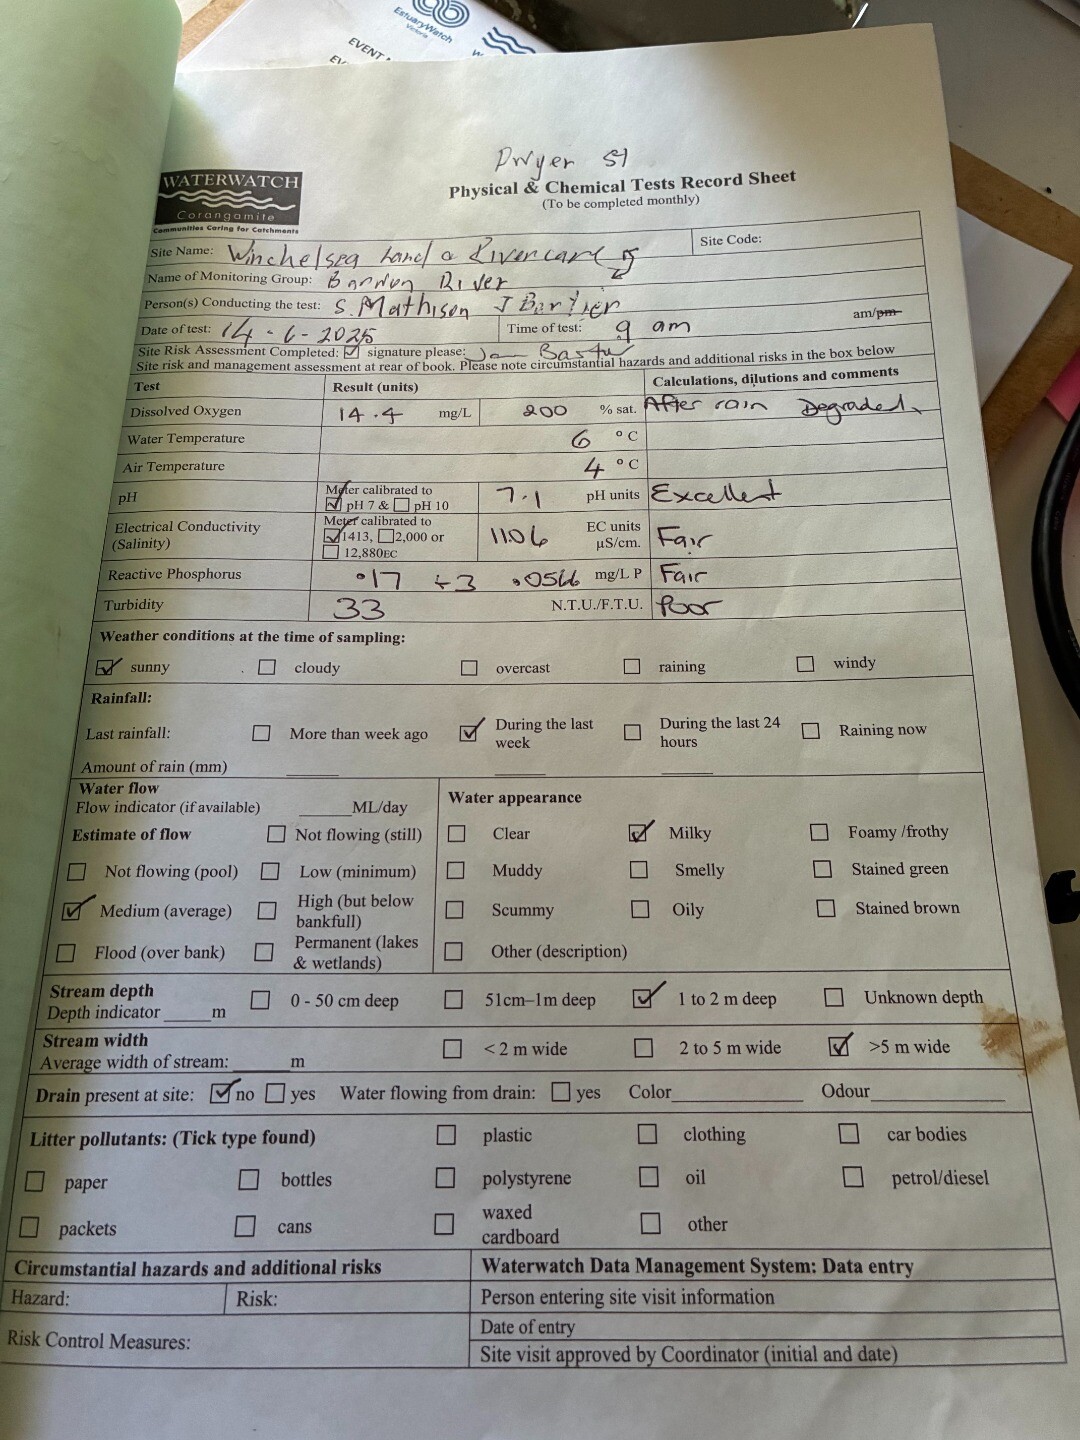 EstuaryWatch
Victoria
EVENT
Dwyer st
WATERWATCH
Corangamite
Communities Caring for Catchments
Physical & Chemical Tests Record Sheet
(To be completed monthly)
Site Name: Winchelsea Land & Rivercare Site Code:
Name of Monitoring Group: Barwon River
Person(s) Conducting the test: S. Mathison J Bartier
Date of test: 14-6-2025 Time of test: 9 am am/pm
Site Risk Assessment Completed: signature please:
Site risk and management assessment at rear of book. Please note circumstantial hazards and additional risks in the box below
Test Result (units) Calculations, dilutions and comments
Dissolved Oxygen 14.4 mg/L 200 % sat. After rain Degraded
Water Temperature 6 °C
Air Temperature 4 °C
pH Meter calibrated to pH 7 & pH 10 7.1 pH units Excellent
Electrical Conductivity (Salinity) Meter calibrated to 1413, 2,000 or 12,880EC 1106 EC units µS/cm. Fair
Reactive Phosphorus .17 ÷3 .0566 mg/L P Fair
Turbidity 33 N.T.U./F.T.U. Poor
Weather conditions at the time of sampling:
sunny cloudy overcast raining windy
Rainfall:
Last rainfall: More than week ago During the last week During the last 24 hours Raining now
Amount of rain (mm)
Water flow
Flow indicator (if available) ML/day
Estimate of flow Not flowing (still)
Not flowing (pool) Low (minimum)
Medium (average) High (but below bankfull)
Flood (over bank) Permanent (lakes & wetlands)
Water appearance
Clear Milky Foamy /frothy
Muddy Smelly Stained green
Scummy Oily Stained brown
Other (description)
Stream depth
Depth indicator m 0 - 50 cm deep 51cm–1m deep 1 to 2 m deep Unknown depth
Stream width
Average width of stream: m < 2 m wide 2 to 5 m wide >5 m wide
Drain present at site: no yes Water flowing from drain: yes Color Odour
Litter pollutants: (Tick type found) plastic clothing car bodies
paper bottles polystyrene oil petrol/diesel
packets cans waxed cardboard other
Circumstantial hazards and additional risks
Hazard: Risk:
Risk Control Measures:
Waterwatch Data Management System: Data entry
Person entering site visit information
Date of entry
Site visit approved by Coordinator (initial and date)